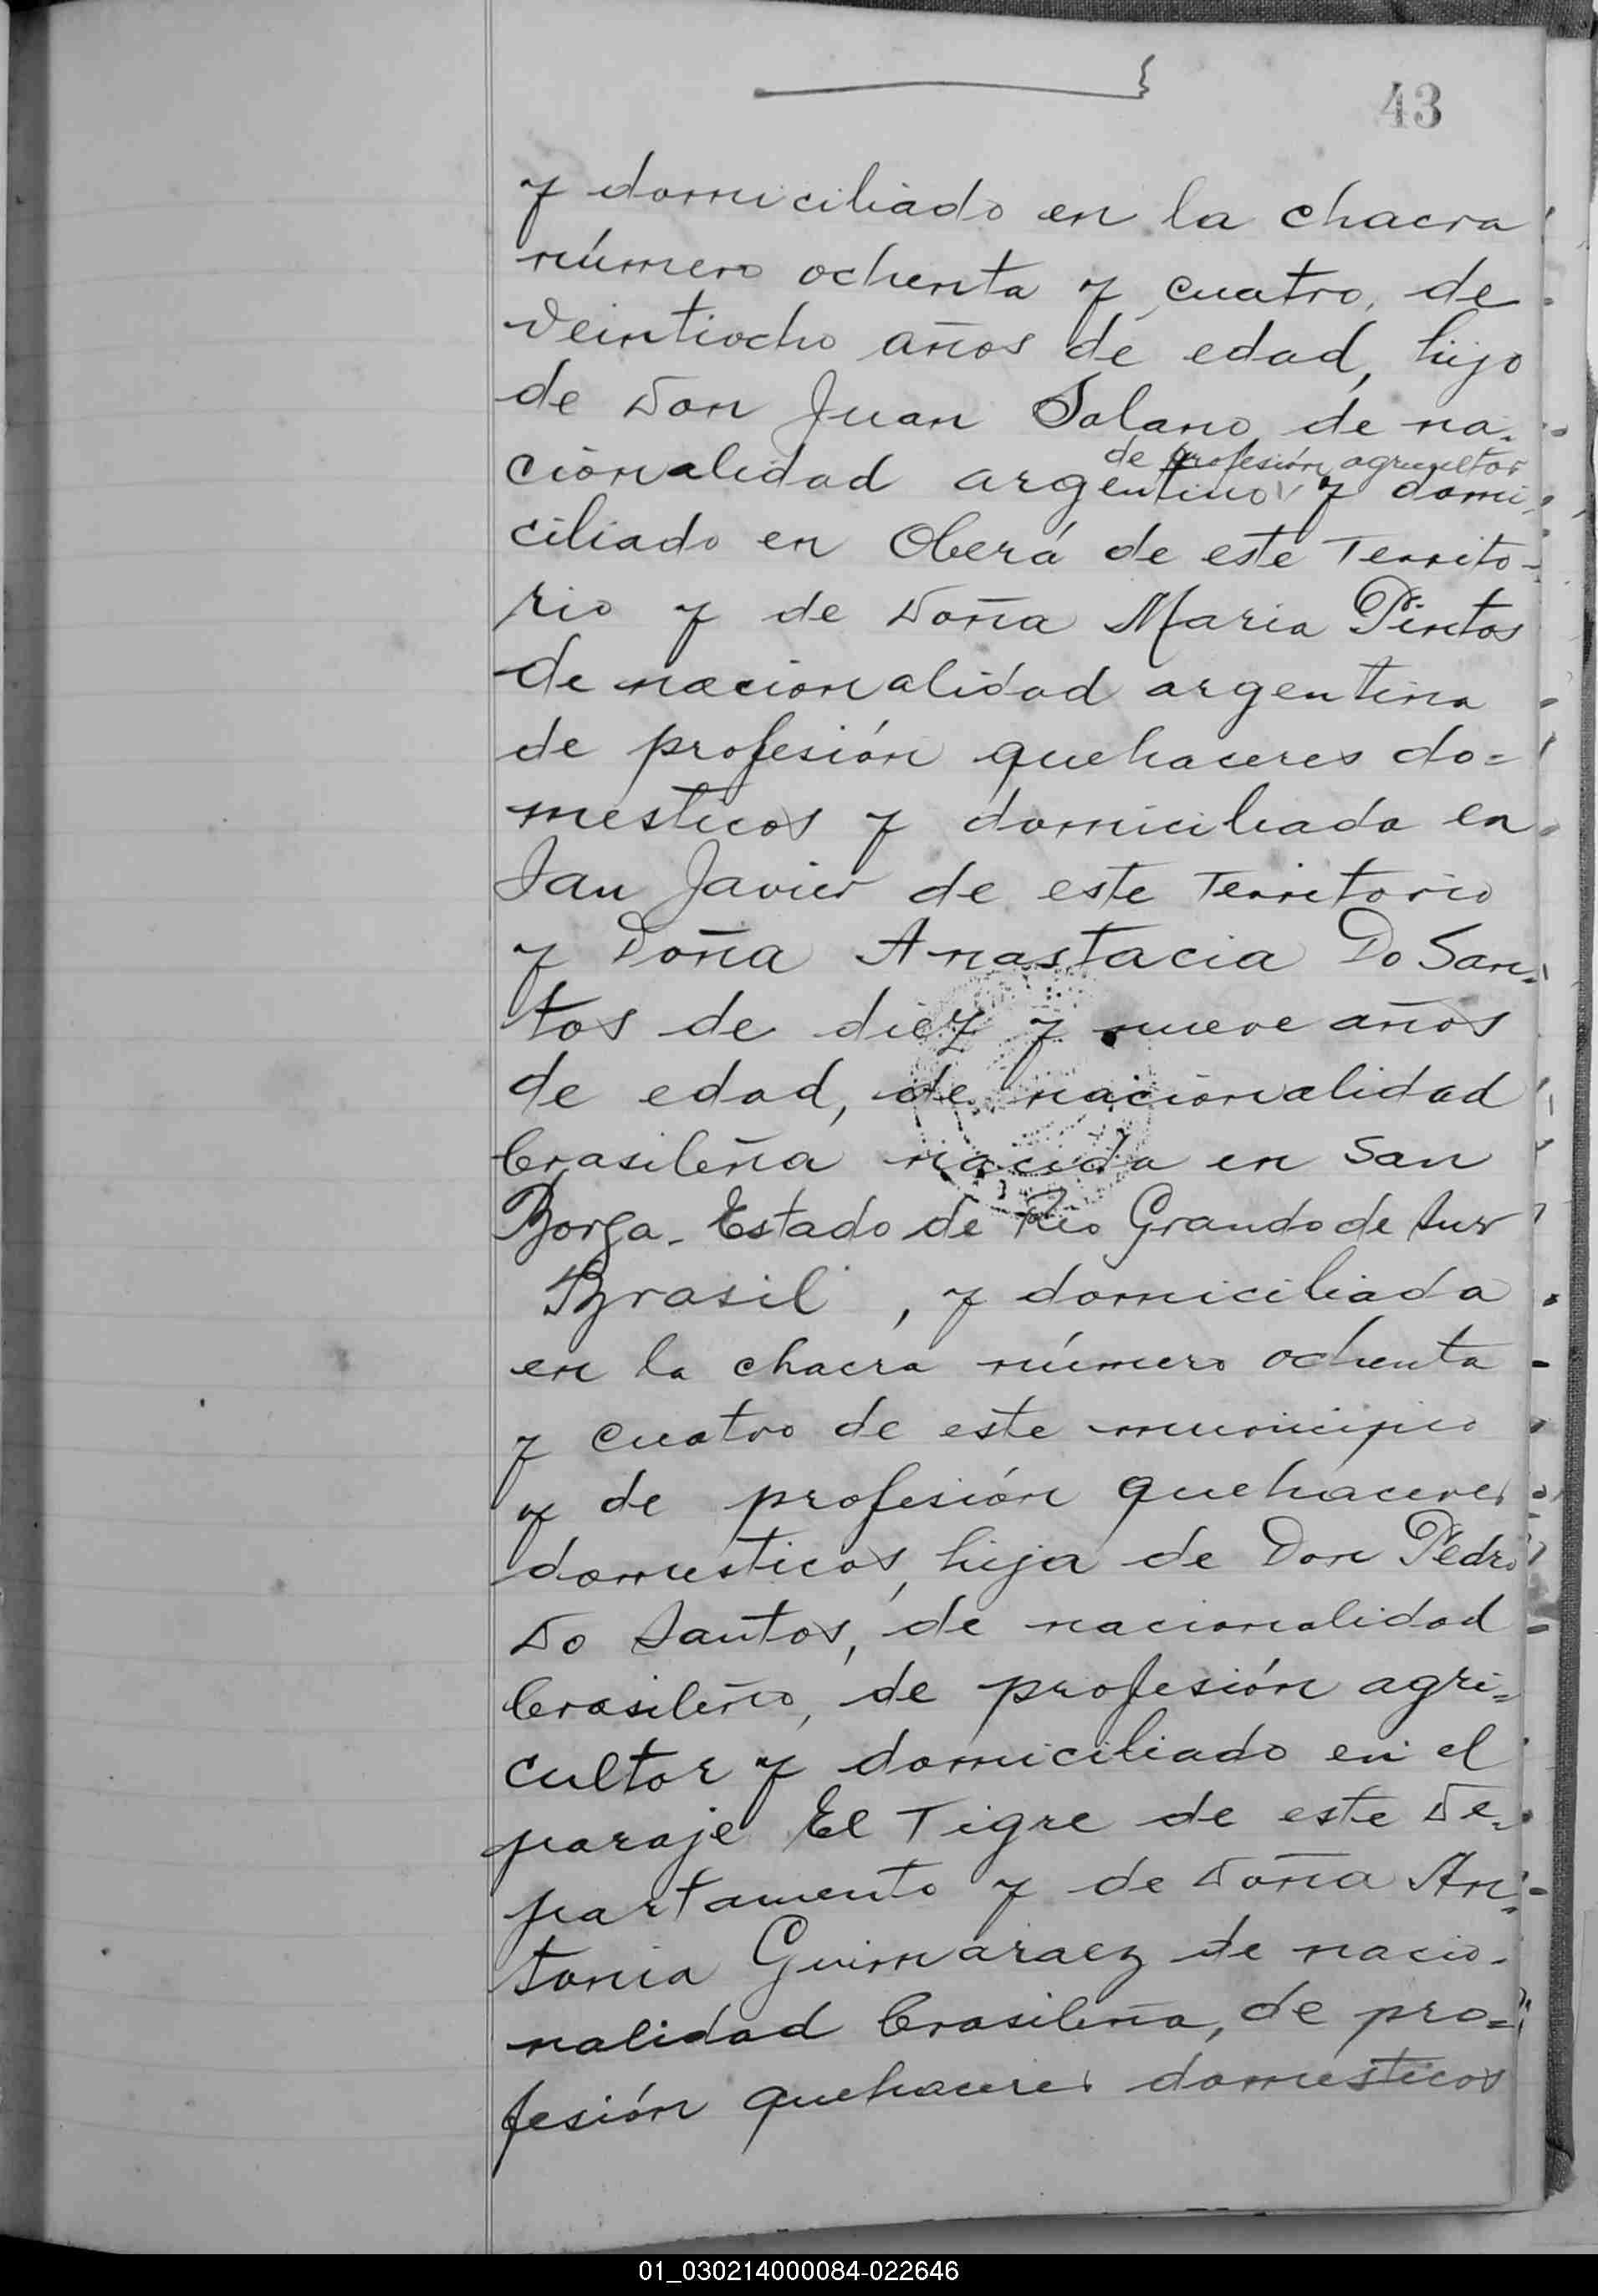 43
y domiciliado en la chacra
número ochenta y cuatro, de
veintiocho años de edad, hijo
de Don Juan Solano de na-
de profesión agricultor
cionalidad argentino y domi-
ciliado en Oberá de este Territo-
rio y de Doña Maria Pintos
de nacionalidad argentina
de profesión quehaceres do=
mesticos y domiciliada en
San Javier de este Territorio
y Doña Anastacia Do San-
tos de diez y nueve años
de edad, de nacionalidad
brasileña nacida en San
Borga - Estado de Rio Grando de Sur
Brasil, y domiciliada
en la chacra número ochenta
y cuatro de este municipio
y de profesión quehaceres
domesticos, hija de Don Pedro
Do Santos, de nacionalidad
brasileño, de profesión agri=
cultor y domiciliado en el
paraje El Tigre de este De-
partamento y de Doña An-
tonia Guimaraez de nacio-
nalidad brasileña, de pro=
fesión quehaceres domesticos
01_030214000084-022646